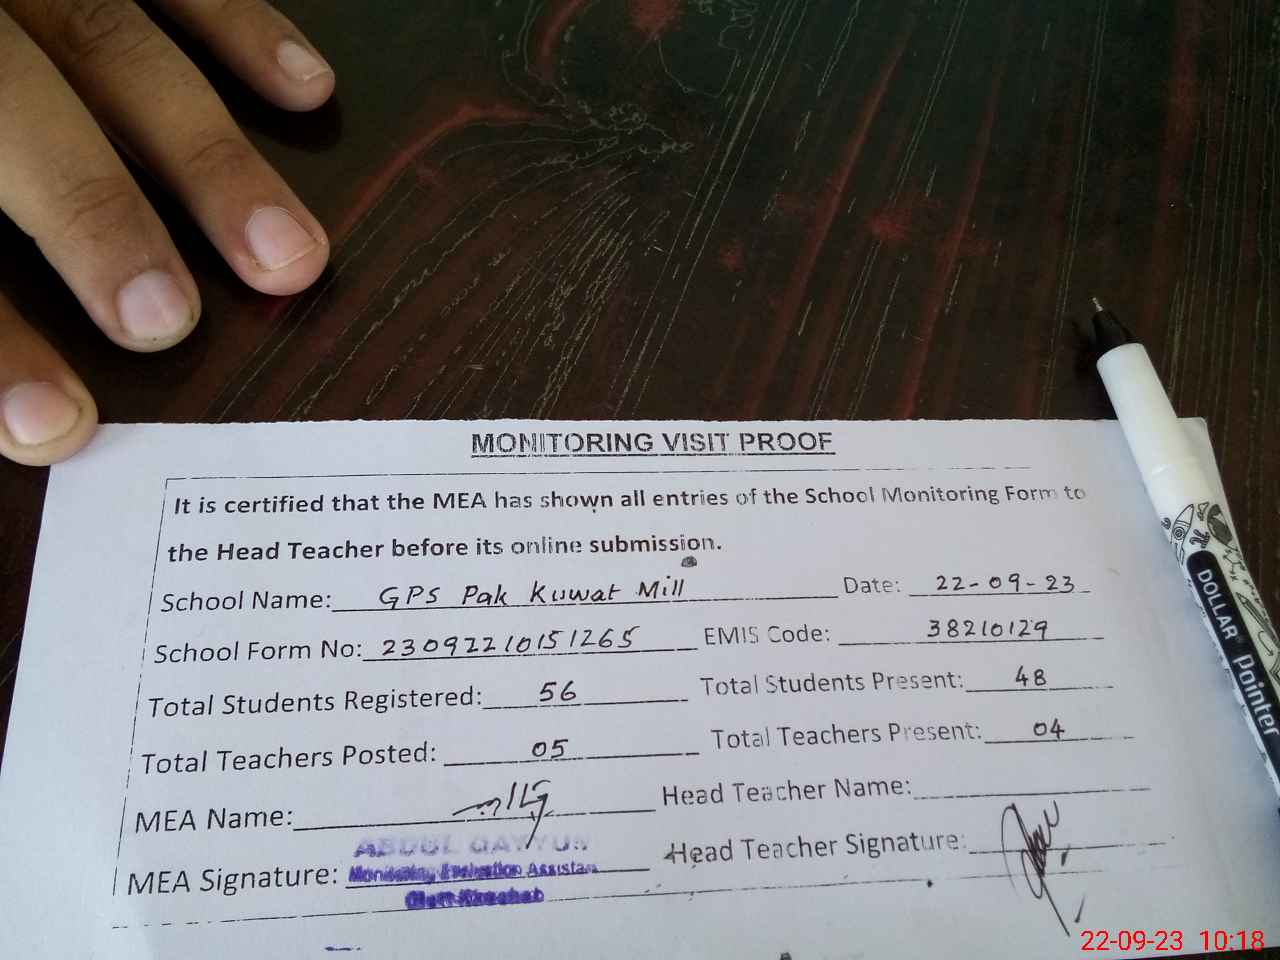 MONITORING VISIT PROOF
It is certified that the MEA has shown all entries of the School Monitoring Form to
the Head Teacher before its online submission.
School Name: GPS Pak Kuwat Mill Date: 22-09-23
School Form No: 23092210151265 EMIS Code: 38210129
Total Students Registered: 56 Total Students Present: 48
Total Teachers Posted: 05 Total Teachers Present: 04
MEA Name: Head Teacher Name:
ABDUL QAYYUM
MEA Signature: Monitoring Evaluation Assistan Head Teacher Signature:
Distt Khushab
DOLLAR Pointer
22-09-23 10:18